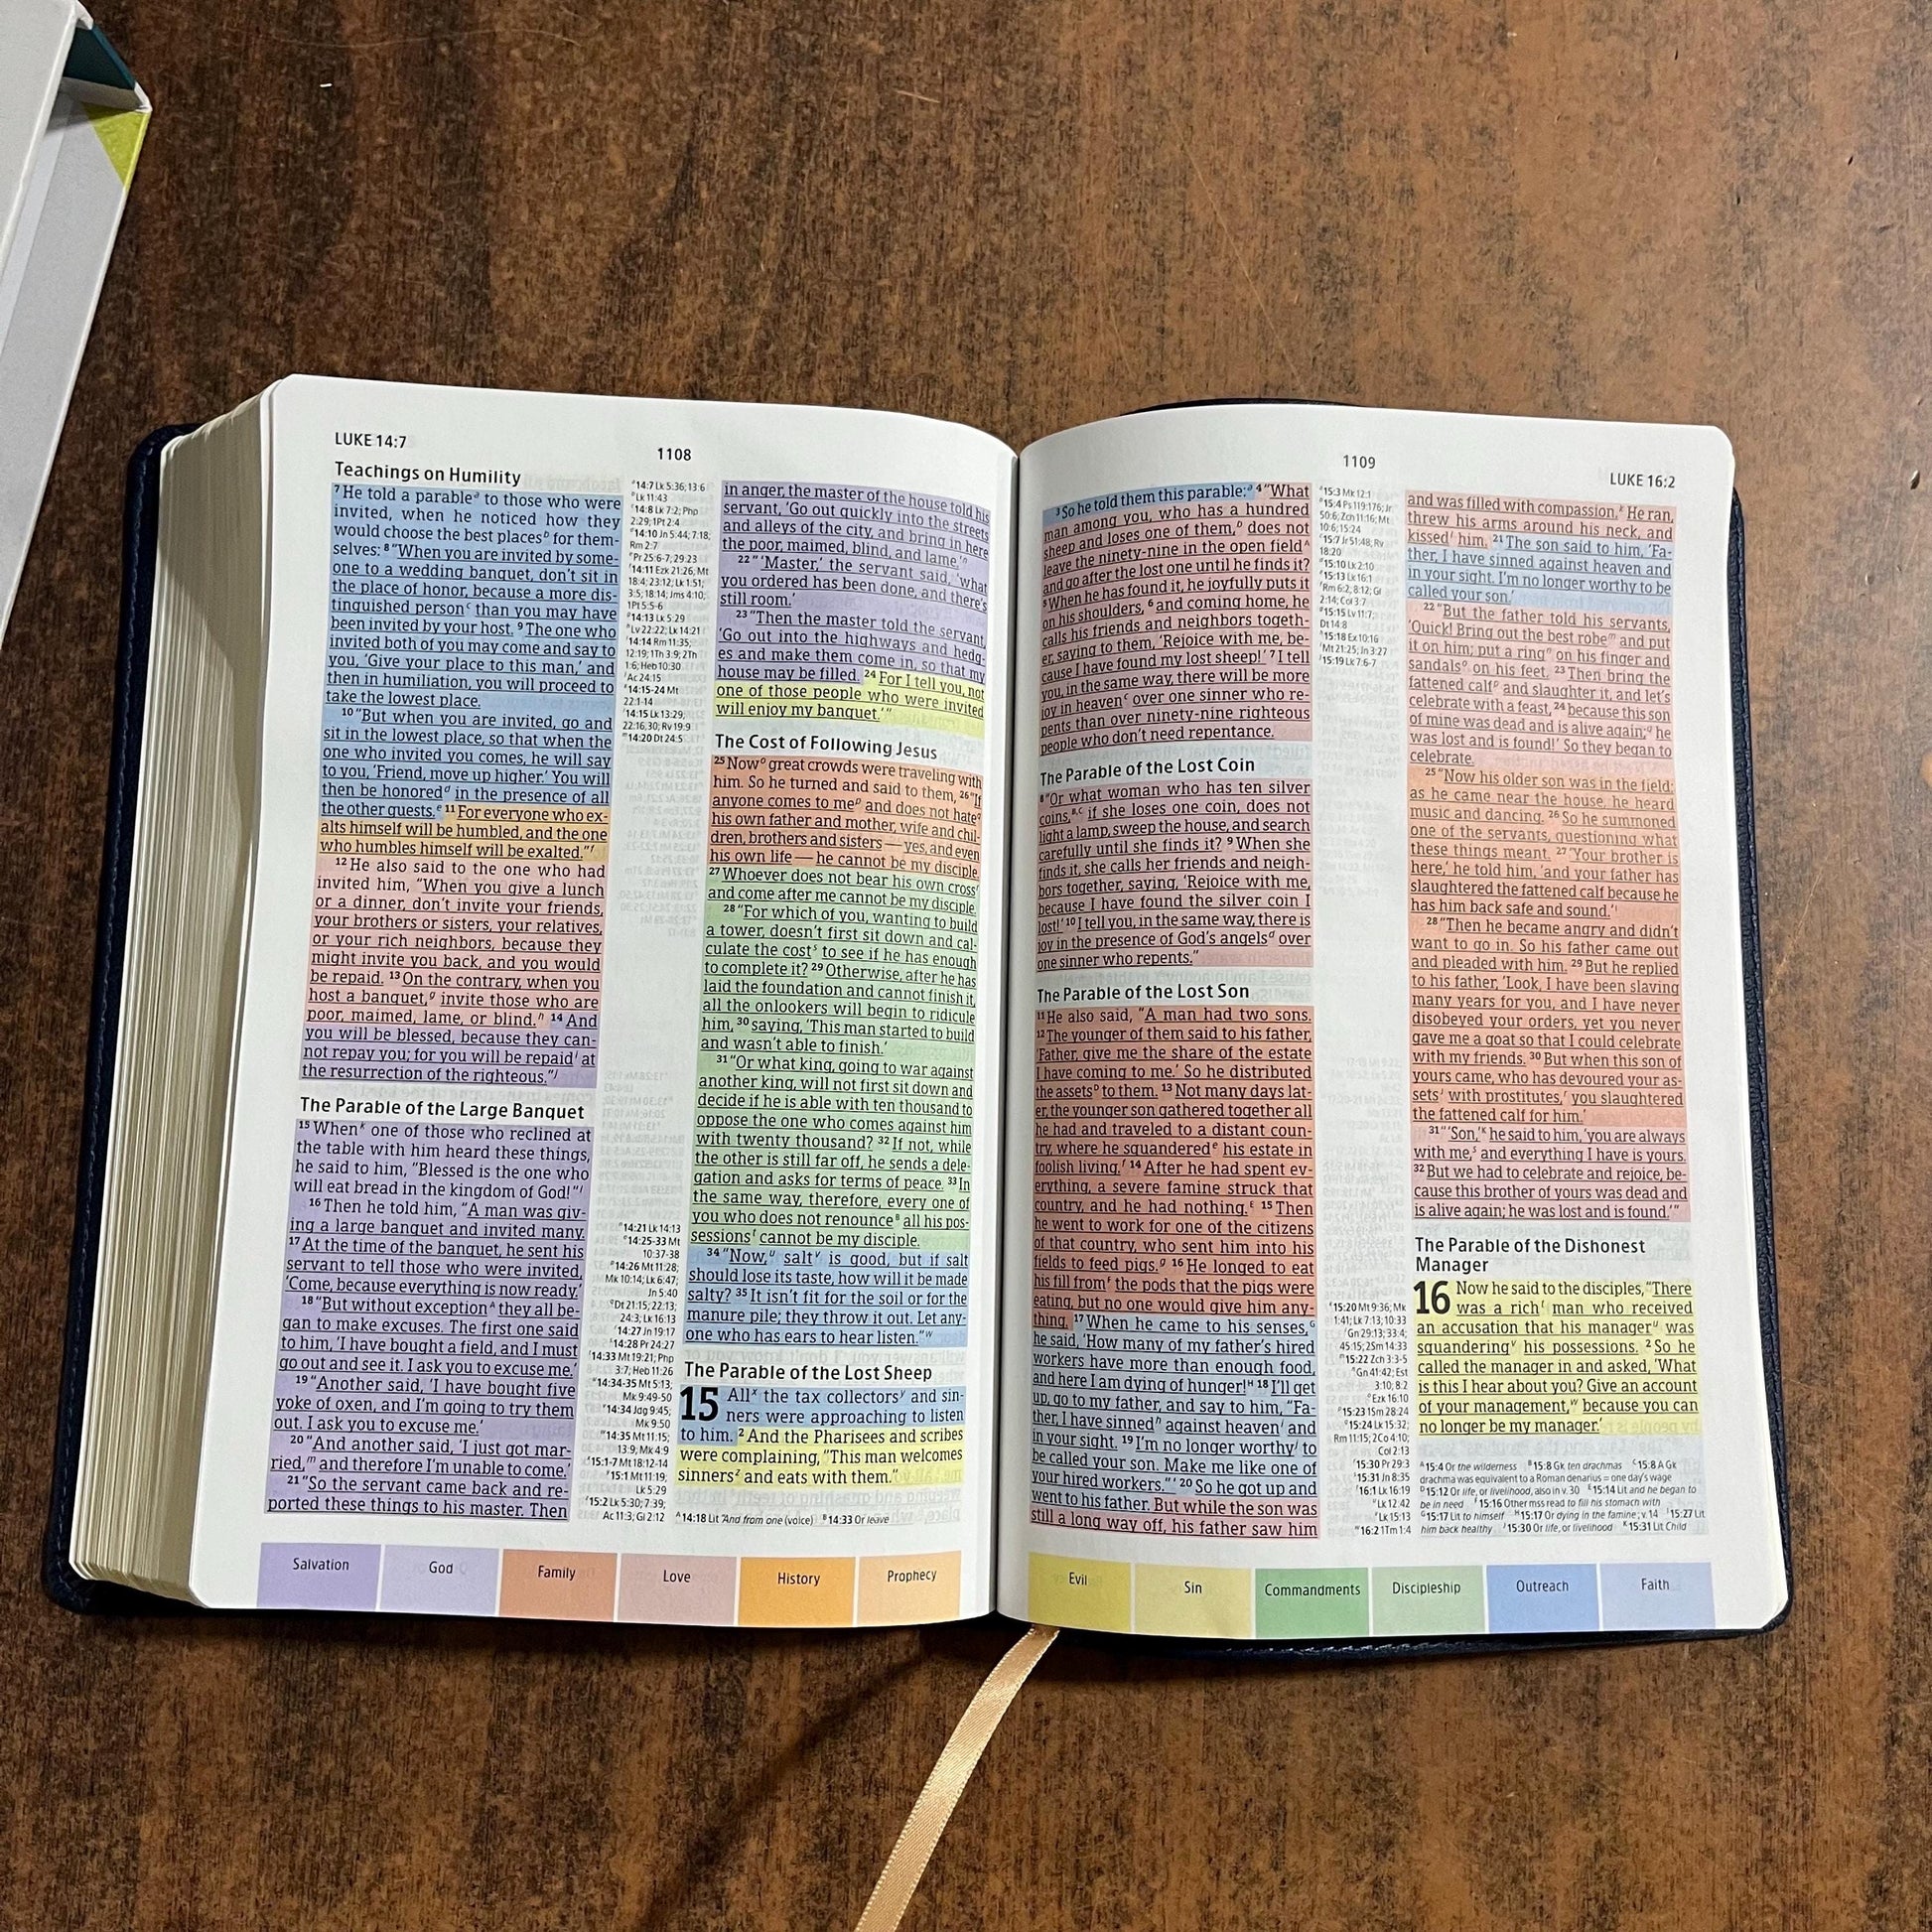 LUKE 14:7
1108
Teachings on Humility
7 He told a parable a to those who were
invited, when he noticed how they
would choose the best places b for them-
selves: 8 “When you are invited by some-
one to a wedding banquet, don’t sit in
the place of honor, because a more dis-
tinguished person c than you may have
been invited by your host. 9 The one who
invited both of you may come and say to
you, ‘Give your place to this man,’ and
then in humiliation, you will proceed to
take the lowest place.
10 “But when you are invited, go and
sit in the lowest place, so that when the
one who invited you comes, he will say
to you, ‘Friend, move up higher.’ You will
then be honored d in the presence of all
the other guests. e 11 For everyone who ex-
alts himself will be humbled, and the one
who humbles himself will be exalted.” f
12 He also said to the one who had
invited him, “When you give a lunch
or a dinner, don’t invite your friends,
your brothers or sisters, your relatives,
or your rich neighbors, because they
might invite you back, and you would
be repaid. 13 On the contrary, when you
host a banquet, g invite those who are
poor, maimed, lame, or blind. h 14 And
you will be blessed, because they can-
not repay you; for you will be repaid i at
the resurrection of the righteous.” j
The Parable of the Large Banquet
15 When k one of those who reclined at
the table with him heard these things,
he said to him, “Blessed is the one who
will eat bread in the kingdom of God!” l
16 Then he told him, “A man was giv-
ing a large banquet and invited many.
17 At the time of the banquet, he sent his
servant to tell those who were invited,
‘Come, because everything is now ready.’
18 “But without exception A they all be-
gan to make excuses. The first one said
to him, ‘I have bought a field, and I must
go out and see it. I ask you to excuse me.’
19 “Another said, ‘I have bought five
yoke of oxen, and I’m going to try them
out. I ask you to excuse me.’
20 “And another said, ‘I just got mar-
ried, m and therefore I’m unable to come.’
21 “So the servant came back and re-
ported these things to his master. Then
14:7 Lk 5:36; 13:6
Lk 11:43
14:8 Lk 7:2; Php
2:29; 1Pt 2:4
14:10 Jn 5:44; 7:18;
Rm 2:7
Pr 25:6-7; 29:23
14:11 Ezk 21:26; Mt
18:4; 23:12; Lk 1:51;
3:5; 18:14; Jms 4:10;
1Pt 5:5-6
14:13 Lk 5:29
Lv 22:22; Lk 14:21
14:14 Rm 11:35;
12:19; 1Th 3:9; 2Th
1:6; Heb 10:30
Ac 24:15
14:15-24 Mt
22:1-14
14:15 Lk 13:29;
22:16,30; Rv 19:9
14:20 Dt 24:5
14:21 Lk 14:13
14:25-33 Mt
10:37-38
14:26 Mt 11:28;
Mk 10:14; Lk 6:47;
Jn 5:40
Dt 21:15; 22:13;
24:3; Lk 16:13
14:27 Jn 19:17
14:28 Pr 24:27
14:33 Mt 19:21; Php
3:7; Heb 11:26
14:34-35 Mt 5:13;
Mk 9:49-50
14:34 Jdg 9:45;
Mk 9:50
14:35 Mt 11:15;
13:9; Mk 4:9
15:1-7 Mt 18:12-14
15:1 Mt 11:19;
Lk 5:29
15:2 Lk 5:30; 7:39;
Ac 11:3; Gl 2:12
in anger, the master of the house told his
servant, ‘Go out quickly into the streets
and alleys of the city, and bring in here
the poor, maimed, blind, and lame.’ n
22 “ ‘Master,’ the servant said, ‘what
you ordered has been done, and there’s
still room.’
23 “Then the master told the servant,
‘Go out into the highways and hedg-
es and make them come in, so that my
house may be filled. 24 For I tell you, not
one of those people who were invited
will enjoy my banquet.’ ”
The Cost of Following Jesus
25 Now o great crowds were traveling with
him. So he turned and said to them, 26 “If
anyone comes to me p and does not hate q
his own father and mother, wife and chil-
dren, brothers and sisters — yes, and even
his own life — he cannot be my disciple.
27 Whoever does not bear his own cross r
and come after me cannot be my disciple.
28 “For which of you, wanting to build
a tower, doesn’t first sit down and cal-
culate the cost s to see if he has enough
to complete it? 29 Otherwise, after he has
laid the foundation and cannot finish it,
all the onlookers will begin to ridicule
him, 30 saying, ‘This man started to build
and wasn’t able to finish.’
31 “Or what king, going to war against
another king, will not first sit down and
decide if he is able with ten thousand to
oppose the one who comes against him
with twenty thousand? 32 If not, while
the other is still far off, he sends a dele-
gation and asks for terms of peace. 33 In
the same way, therefore, every one of
you who does not renounce B all his pos-
sessions t cannot be my disciple.
34 “Now, u salt v is good, but if salt
should lose its taste, how will it be made
salty? 35 It isn’t fit for the soil or for the
manure pile; they throw it out. Let any-
one who has ears to hear listen.” w
The Parable of the Lost Sheep
15 All x the tax collectors y and sin-
ners were approaching to listen
to him. 2 And the Pharisees and scribes
were complaining, “This man welcomes
sinners z and eats with them.”
A 14:18 Lit And from one (voice) B 14:33 Or leave
Salvation
God
Family
Love
History
Prophecy
1109
LUKE 16:2
3 So he told them this parable: a 4 “What
man among you, who has a hundred
sheep and loses one of them, b does not
leave the ninety-nine in the open field A
and go after the lost one until he finds it?
5 When he has found it, he joyfully puts it
on his shoulders, 6 and coming home, he
calls his friends and neighbors togeth-
er, saying to them, ‘Rejoice with me, be-
cause I have found my lost sheep!’ 7 I tell
you, in the same way, there will be more
joy in heaven c over one sinner who re-
pents than over ninety-nine righteous
people who don’t need repentance.
The Parable of the Lost Coin
8 “Or what woman who has ten silver
coins, B,C if she loses one coin, does not
light a lamp, sweep the house, and search
carefully until she finds it? 9 When she
finds it, she calls her friends and neigh-
bors together, saying, ‘Rejoice with me,
because I have found the silver coin I
lost!’ 10 I tell you, in the same way, there is
joy in the presence of God’s angels d over
one sinner who repents.”
The Parable of the Lost Son
11 He also said, “A man had two sons.
12 The younger of them said to his father,
‘Father, give me the share of the estate
I have coming to me.’ So he distributed
the assets D to them. 13 Not many days lat-
er, the younger son gathered together all
he had and traveled to a distant coun-
try, where he squandered e his estate in
foolish living. f 14 After he had spent ev-
erything, a severe famine struck that
country, and he had nothing. E 15 Then
he went to work for one of the citizens
of that country, who sent him into his
fields to feed pigs. g 16 He longed to eat
his fill from F the pods that the pigs were
eating, but no one would give him any-
thing. 17 When he came to his senses, G
he said, ‘How many of my father’s hired
workers have more than enough food,
and here I am dying of hunger! H 18 I’ll get
up, go to my father, and say to him, “Fa-
ther, I have sinned h against heaven i and
in your sight. 19 I’m no longer worthy j to
be called your son. Make me like one of
your hired workers.” ’ 20 So he got up and
went to his father. But while the son was
still a long way off, his father saw him
15:3 Mk 12:1
15:4 Ps 119:176; Jr
50:6; Zch 11:16; Mt
10:6; 15:24
15:7 Jr 51:48; Rv
18:20
15:10 Lk 2:10
15:13 Lk 16:1
Rm 6:2; 8:12; Gl
2:14; Col 3:7
15:15 Lv 11:7;
Dt 14:8
15:18 Ex 10:16
Mt 21:25; Jn 3:27
15:19 Lk 7:6-7
15:20 Mt 9:36; Mk
1:41; Lk 7:13; 10:33
Gn 29:13; 33:4;
45:15; 2Sm 14:33
15:22 Zch 3:3-5
Gn 41:42; Est
3:10; 8:2
Ezk 16:10
15:23 1Sm 28:24
15:24 Lk 15:32;
Rm 11:15; 2Co 4:10;
Col 2:13
15:30 Pr 29:3
15:31 Jn 8:35
16:1 Lk 16:19
Lk 12:42
Lk 15:13
16:2 1Tm 1:4
and was filled with compassion. k He ran,
threw his arms around his neck, and
kissed l him. 21 The son said to him, ‘Fa-
ther, I have sinned against heaven and
in your sight. I’m no longer worthy to be
called your son.’
22 “But the father told his servants,
‘Quick! Bring out the best robe m and put
it on him; put a ring n on his finger and
sandals o on his feet. 23 Then bring the
fattened calf p and slaughter it, and let’s
celebrate with a feast, 24 because this son
of mine was dead and is alive again; q he
was lost and is found!’ So they began to
celebrate.
25 “Now his older son was in the field;
as he came near the house, he heard
music and dancing. 26 So he summoned
one of the servants, questioning what
these things meant. 27 ‘Your brother is
here,’ he told him, ‘and your father has
slaughtered the fattened calf because he
has him back safe and sound.’ I
28 “Then he became angry and didn’t
want to go in. So his father came out
and pleaded with him. 29 But he replied
to his father, ‘Look, I have been slaving
many years for you, and I have never
disobeyed your orders, yet you never
gave me a goat so that I could celebrate
with my friends. 30 But when this son of
yours came, who has devoured your as-
sets J with prostitutes, r you slaughtered
the fattened calf for him.’
31 “ ‘Son,’ K he said to him, ‘you are always
with me, s and everything I have is yours.
32 But we had to celebrate and rejoice, be-
cause this brother of yours was dead and
is alive again; he was lost and is found.’ ”
The Parable of the Dishonest
Manager
16 Now he said to the disciples, “There
was a rich t man who received
an accusation that his manager u was
squandering v his possessions. 2 So he
called the manager in and asked, ‘What
is this I hear about you? Give an account
of your management, w because you can
no longer be my manager.’
A 15:4 Or the wilderness B 15:8 Gk ten drachmas C 15:8 A Gk
drachma was equivalent to a Roman denarius = one day’s wage
D 15:12 Or life, or livelihood, also in v. 30 E 15:14 Lit and he began to
be in need F 15:16 Other mss read to fill his stomach with
G 15:17 Lit to himself H 15:17 Or dying in the famine; v. 14 I 15:27 Lit
him back healthy J 15:30 Or life, or livelihood K 15:31 Lit Child
Evil
Sin
Commandments
Discipleship
Outreach
Faith